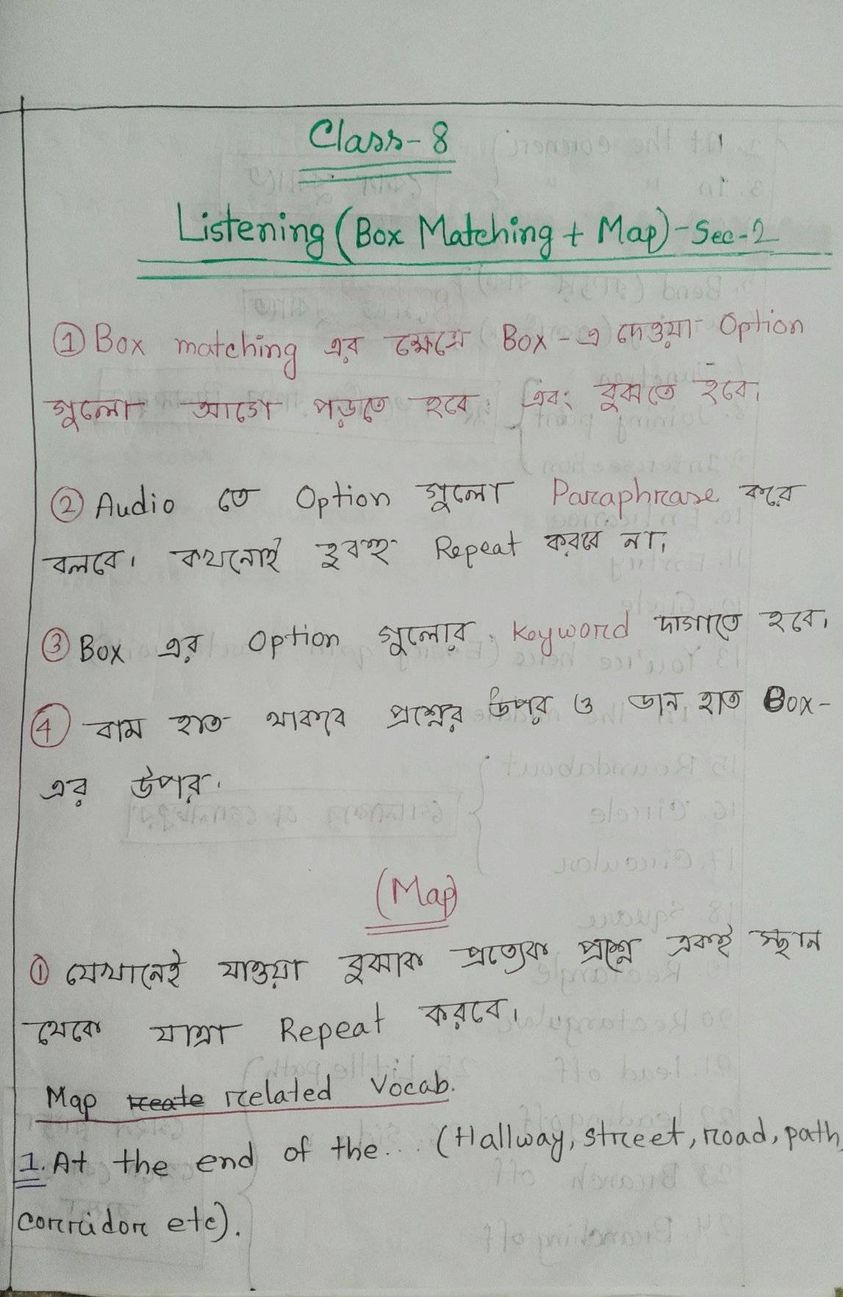 Class-8
Listening (Box Matching + Map)-Sec-2
① Box matching এর ক্ষেত্রে Box-এ দেওয়া Option
গুলো আগে পড়তে হবে এবং বুঝতে হবে।
② Audio তে Option গুলো Paraphrase করে
বলবে। কখনোই হুবহু Repeat করবে না।
③ Box এর Option গুলোর Keyword দাগাতে হবে।
④ বাম হাত থাকবে প্রশ্নের উপর ও ডান হাত Box-
এর উপর।
(Map)
① যেখানেই যাওয়া বুঝাক প্রত্যেক প্রশ্নে একই স্থান
থেকে যাত্রা Repeat করবে।
Map related Vocab.
1. At the end of the... (Hallway, street, road, path,
corridor etc).